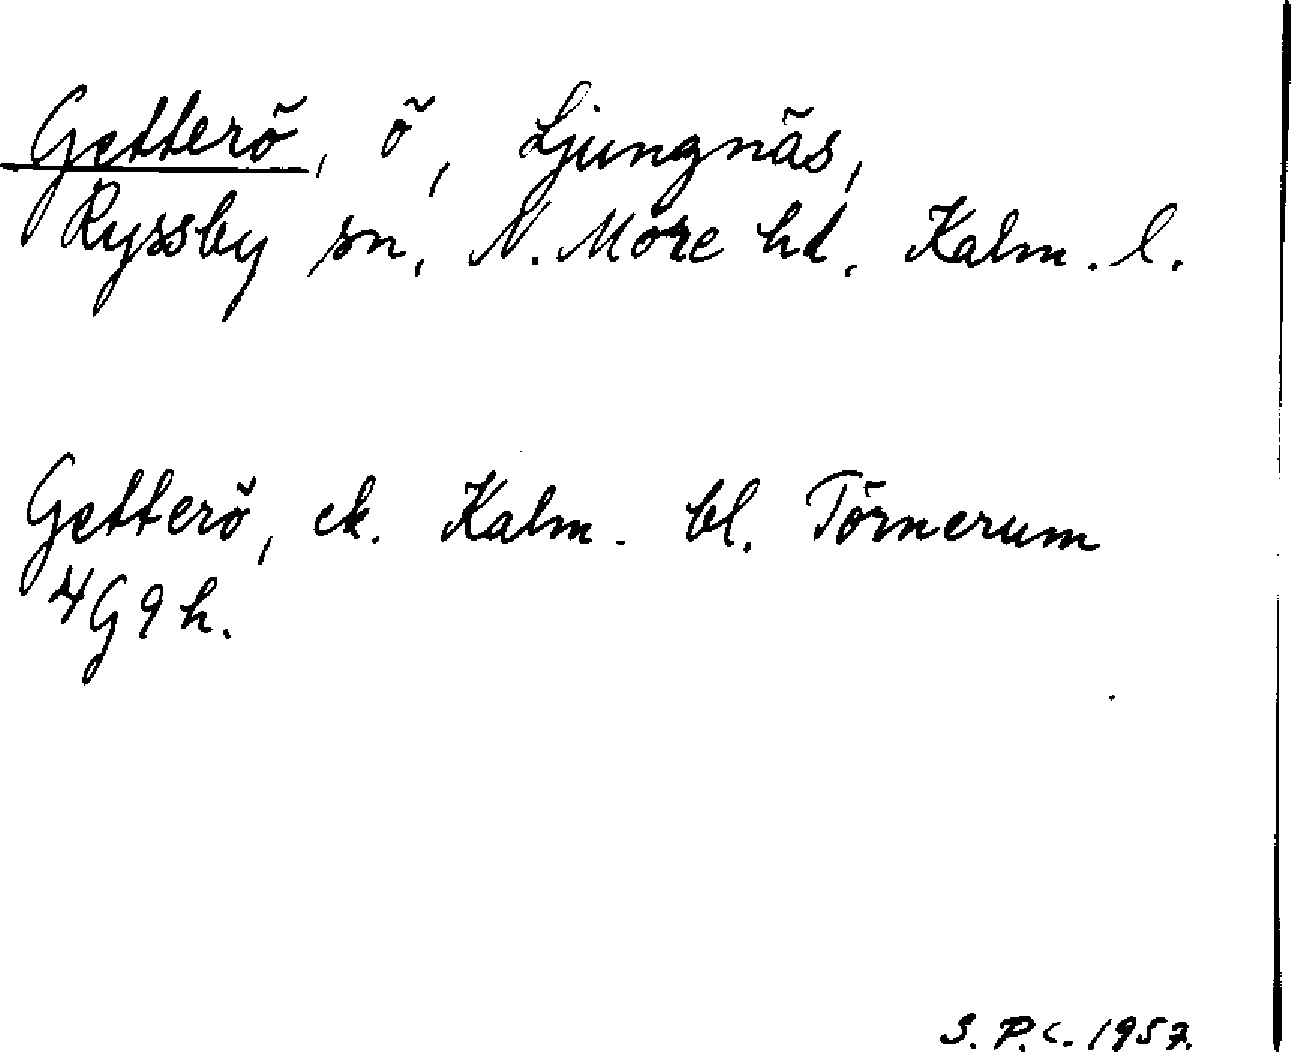 Getterö, ö, Ljungnäs,
Ryssby sn, N. Möre hd, Kalm. l.
Getterö, ek. Kalm. bl. Törnerum
4G9h.
S. P. C. 1957.